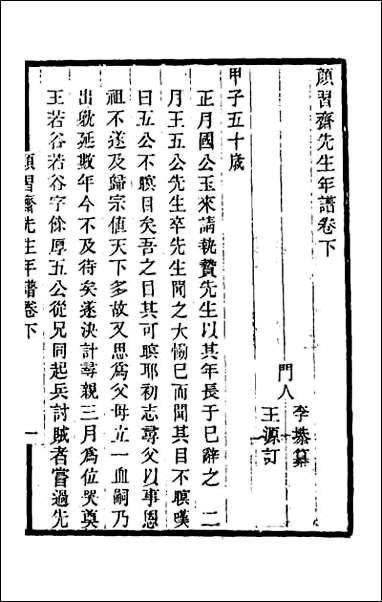 顏習齋先生年譜卷下
門人
李塨纂
王源訂
甲子五十歲
正月國公玉來請執贄先生以其年長于己辭之 二
月王五公先生卒先生聞之大慟已而聞其目不瞑嘆
曰五公不瞑目矣吾之目其可瞑耶初志尋父以事恩
祖不遂及歸宗值天下多故又思爲父母立一血嗣乃
出躭延數年今不及待矣遂決計尋親三月爲位哭奠
王若谷若谷字餘厚五公從兄同起兵討賊者嘗過先
顏習齋先生年譜卷下
一